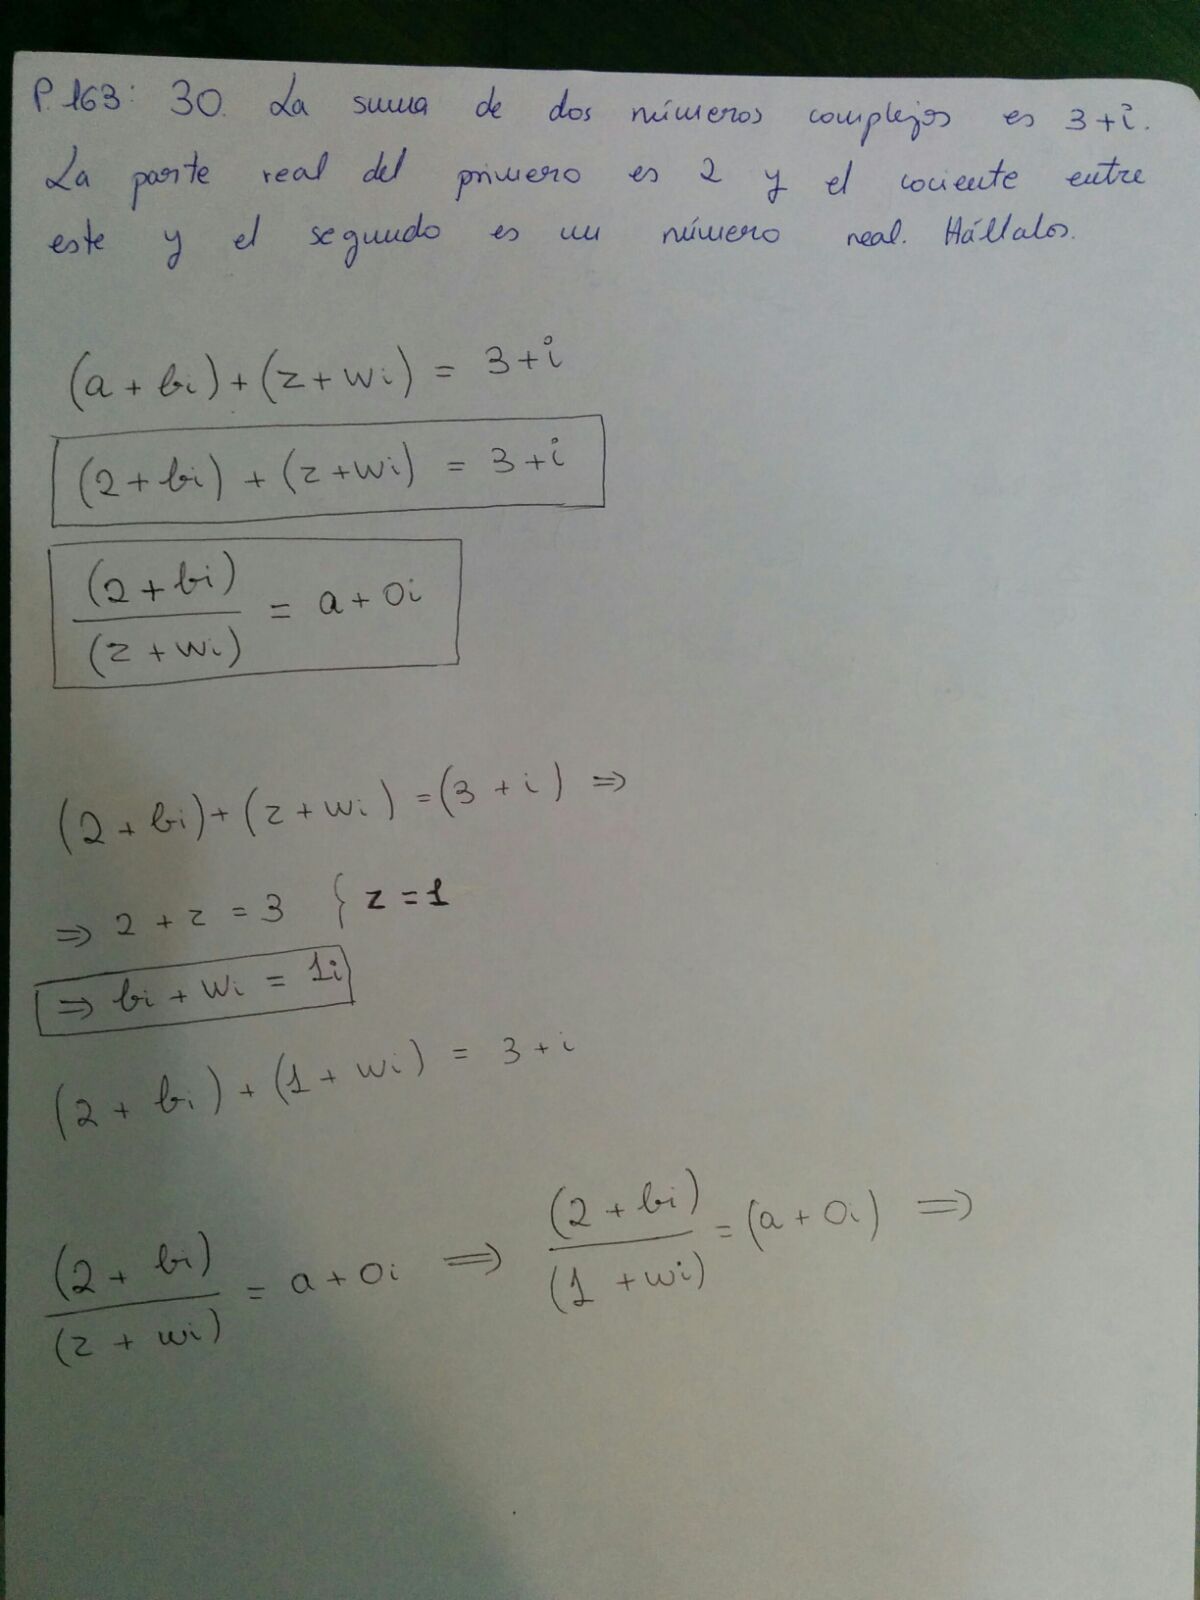 P.163: 30. La suma de dos números complejos es 3+i.
La parte real del primero es 2 y el cociente entre
este y el segundo es un número real. Hállalos.
(a + bi) + (z + wi) = 3+i
(2 + bi) + (z + wi) = 3+i
(2 + bi)/(z + wi) = a + 0i
(2 + bi) + (z + wi) = (3 + i) ⇒
⇒ 2 + z = 3 { z = 1
⇒ bi + wi = 1i
(2 + bi) + (1 + wi) = 3 + i
(2 + bi)/(z + wi) = a + 0i ⇒ (2 + bi)/(1 + wi) = (a + 0i) ⇒